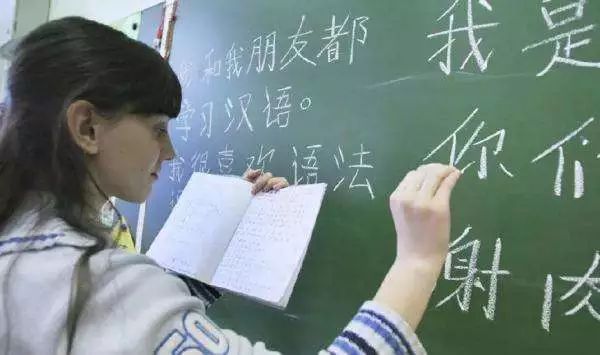 我和我朋友都
学习汉语。
我很喜欢语法
我是
你们
射
50